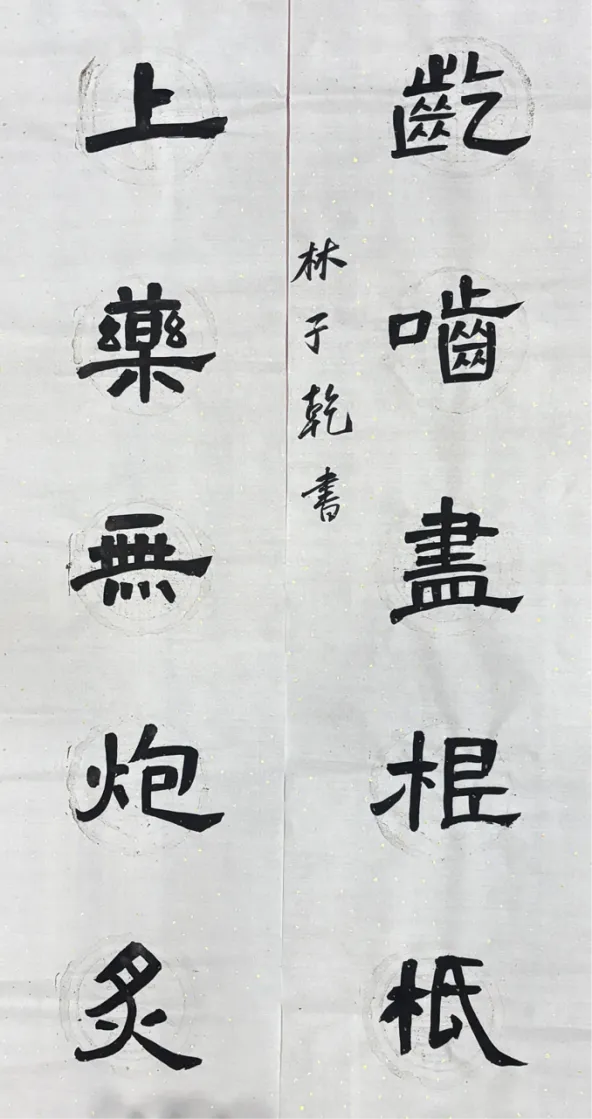 齕嚙盡根柢
林子乾書
上藥無炮炙